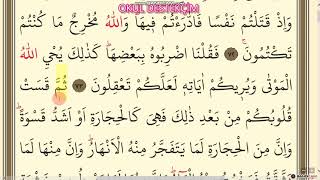 OKUL DESTEKÇİM
وَاِذْ قَتَلْتُمْ نَفْسًا فَادّٰرَءْتُمْ فٖيهَا وَاللّٰهُ مُخْرِجٌ مَا كُنْتُمْ
تَكْتُمُونَ ﴿٧٢﴾ فَقُلْنَا اضْرِبُوهُ بِبَعْضِهَا كَذٰلِكَ يُحْيِ اللّٰهُ
الْمَوْتٰى وَيُرٖيكُمْ اٰيَاتِهٖ لَعَلَّكُمْ تَعْقِلُونَ ﴿٧٣﴾ ثُمَّ قَسَتْ
قُلُوبُكُمْ مِنْ بَعْدِ ذٰلِكَ فَهِىَ كَالْحِجَارَةِ اَوْ اَشَدُّ قَسْوَةً
وَاِنَّ مِنَ الْحِجَارَةِ لَمَا يَتَفَجَّرُ مِنْهُ الْاَنْهَارُ وَاِنَّ مِنْهَا لَمَا